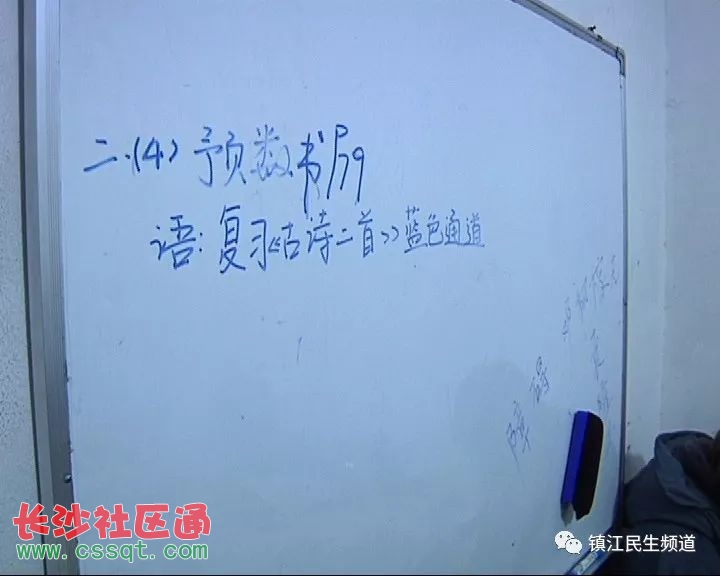 二.(4) 预数书P79
语: 复习《古诗二首》蓝色通道
长沙社区通
www.cssqt.com
镇江民生频道